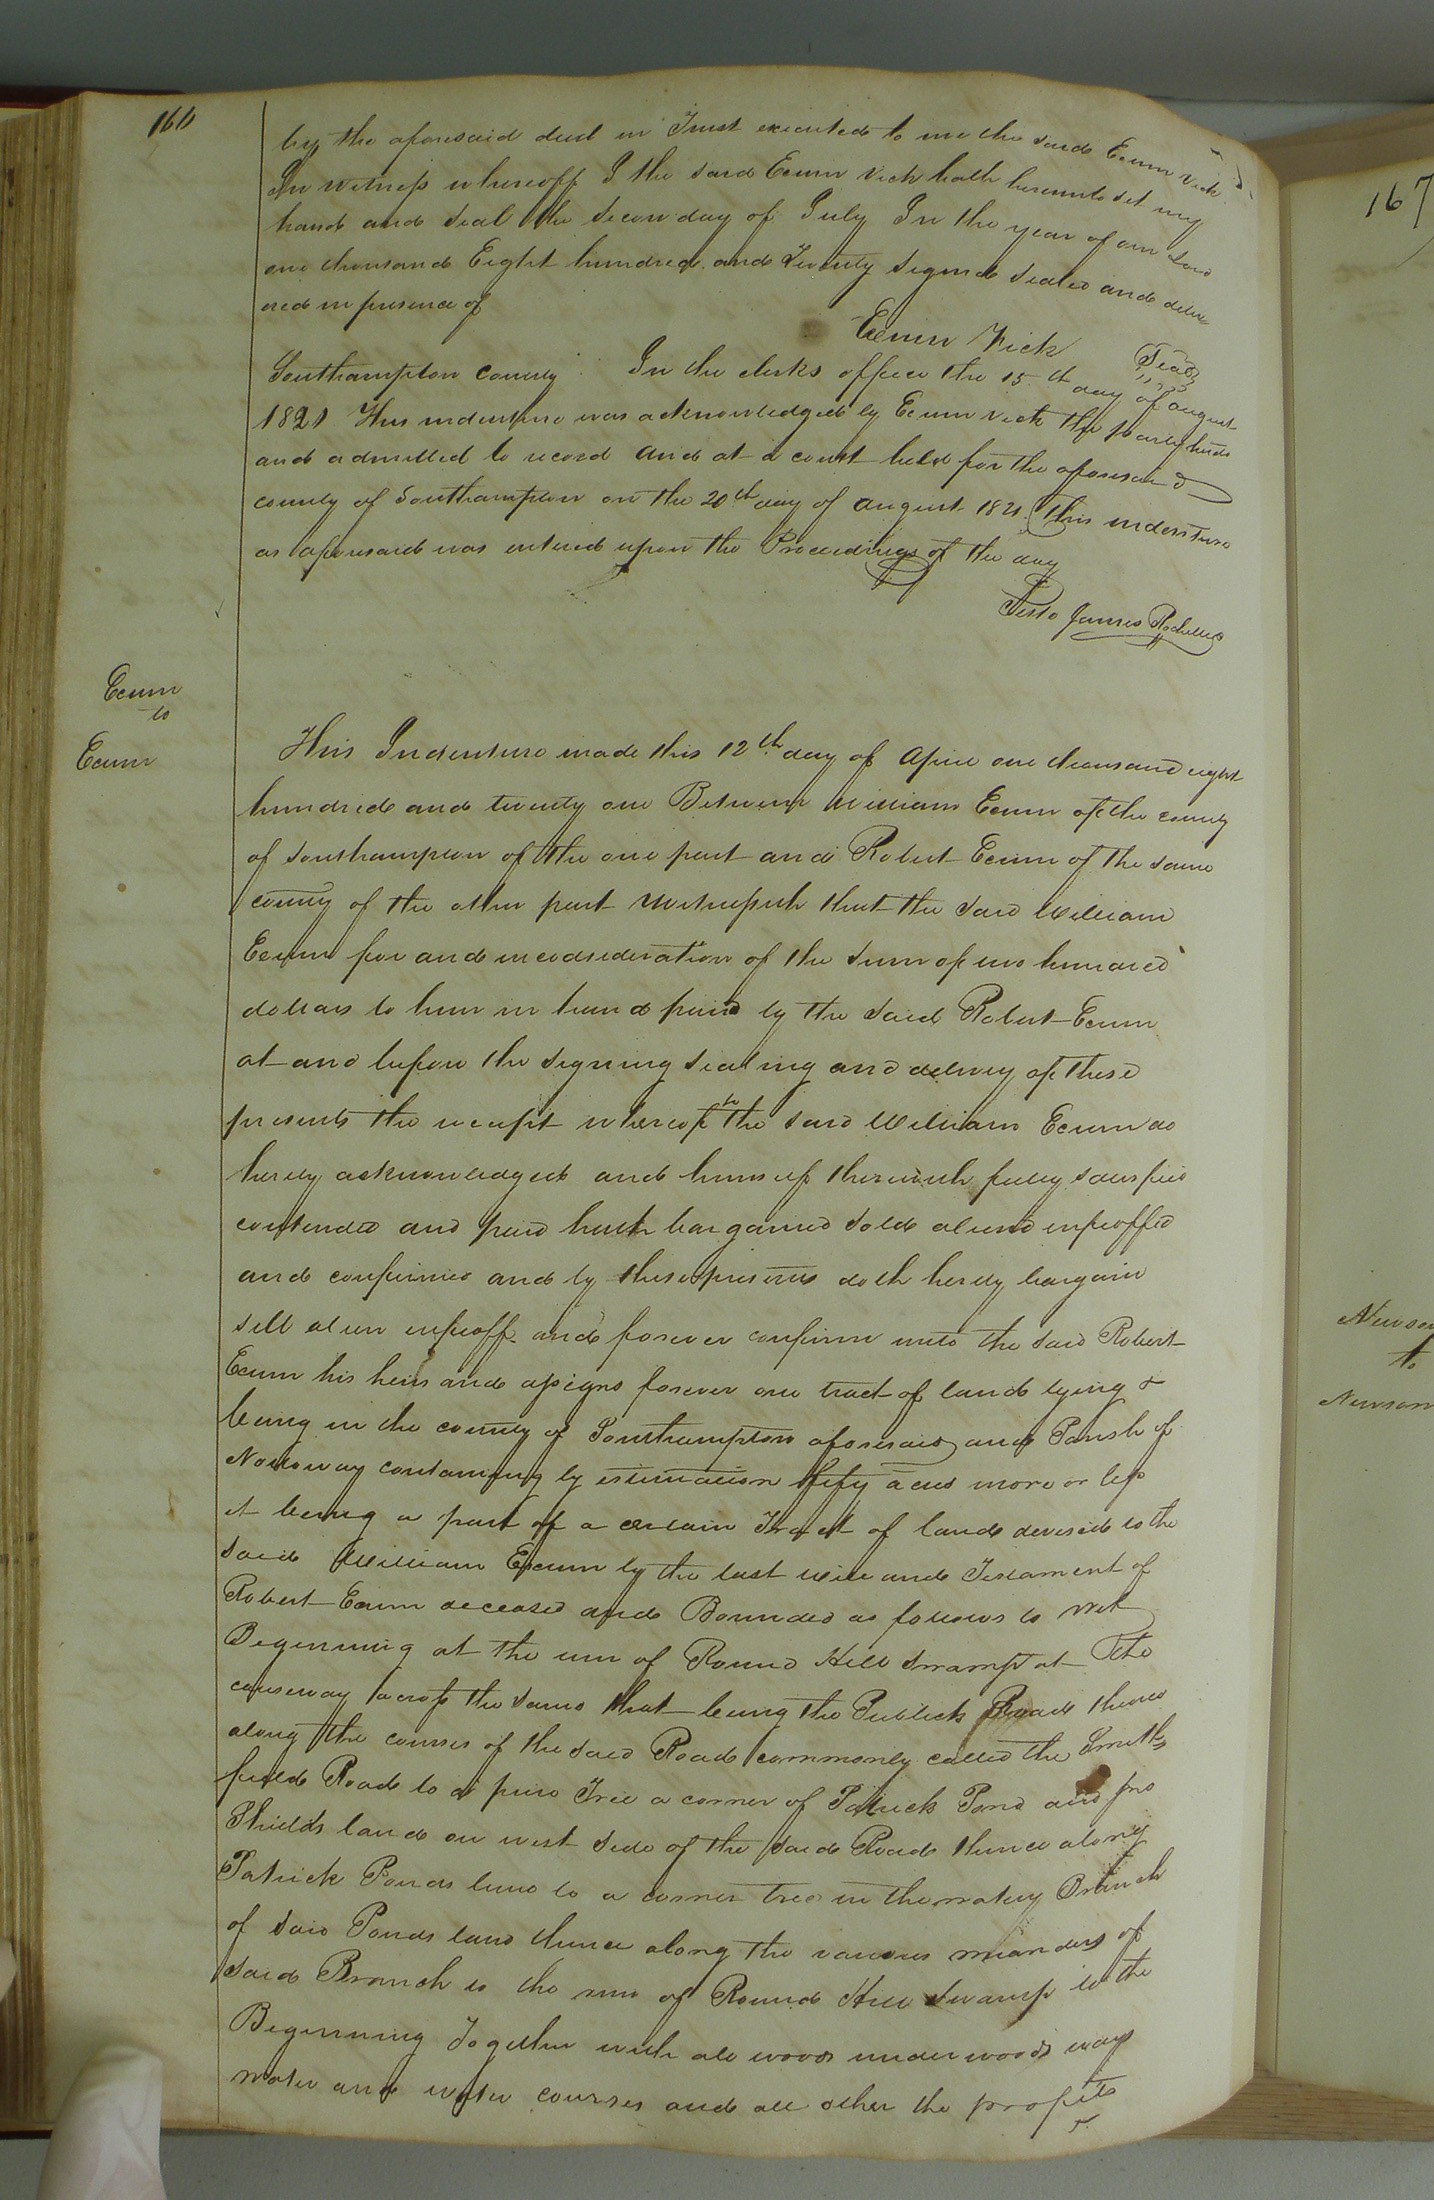 166
by the aforesaid deed in Trust executed to me the said Ecum Vick
In witness whereoff I the said Ecum Vick hath hereunto set my
hand and Seal the Secon day of July In the year of our Lord
one thousand Eight hundred and Twenty Signed Sealed and deliv
ered in presence of
Ecum Vick Seal
Southampton County In the clerks office the 15th day of august
1821 This indenture was acknowledged by Ecum Vick the party hereto
and admitted to record and at a court held for the aforesaid
county of Southampton on the 20th day of august 1821 This indenture
as aforesaid was entered upon the Proceedings of the day
Teste James Rochelle
Ecum
to
Ecum
This Indenture made this 12th day of April one thousand eight
hundred and twenty one Between William Ecum of the county
of Southampton of the one part and Robert Ecum of the same
county of the other part Witnesseth that the said William
Ecum for and in consideration of the Sum of two hundred
dollars to him in hand paid by the said Robert Ecum
at and before the signing sealing and delivery of these
presents the receipt whereof he the said William Ecum do
hereby acknowledged and himself therewith fully satisfied
contended and paid hath bargained sold aliend infeoffed
and confirmed and by these presents doth hereby bargain
sell alien infeoff and forever confirm unto the said Robert
Ecum his heirs and assigns forever one tract of land lying &
being in the county of Southampton aforesaid and Parish of
Nottoway containing by estimation fifty acres more or less
it being a part of a certain Tract of land devised to the
said William Ecum by the last will and Testament of
Robert Ecum deceased and Bounded as follows to wit
Beginning at the run of Round Hill Swamp at the
causeway across the same that being the Publick Road thence
along the courses of the said Road commonly called the Smith
field Road to a pine Tree a corner of Patrick Pond and Jno
Shields land on west side of the said Road thence along
Patrick Ponds line to a corner tree in the watery Branch
of said Ponds land thence along the various meanders of
said Branch to the run of Round Hill Swamp to the
Beginning Together with all woods underwoods ways
water and water courses and all other the profits
&
167
Newsom
to
Newsom